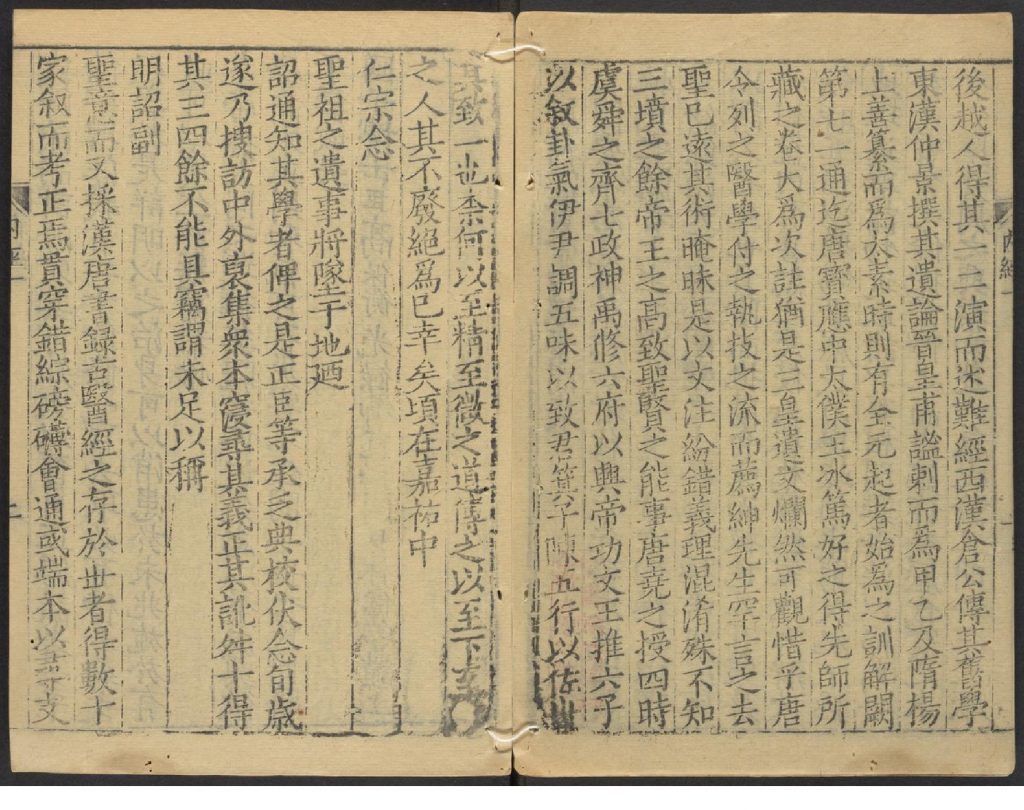 後越人得其一二演而述難經西漢倉公傳其舊學
東漢仲景撰其遺論晉皇甫謐刺而爲甲乙及隋楊
上善纂而爲太素時則有全元起者始爲之訓解闕
第七一通迄唐寶應中太僕王冰篤好之得先師所
藏之卷大爲次註猶是三皇遺文爛然可觀惜乎唐
令列之醫學付之執技之流而薦紳先生罕言之去
聖已遠其術晻昧是以文注紛錯義理混淆殊不知
三墳之餘帝王之高致聖賢之能事唐堯之授四時
虞舜之齊七政神禹修六府以興帝功文王推六子
以敘卦氣伊尹調五味以致君箕子陳五行以佐世
其致一也柰何以至精至微之道傳之以至下至
之人其不廢絕爲已幸矣頃在嘉祐中
仁宗念
聖祖之遺事將墜于地廼
詔通知其學者俾之是正臣等承乏典校伏念旬歲
遂乃搜訪中外裒集衆本寖尋其義正其訛舛十得
其三四餘不能具竊謂未足以稱
明詔副
聖意而又採漢唐書録古醫經之存於世者得數十
家叙而考正焉貫穿錯綜磅礴會通或端本以尋支
內經一